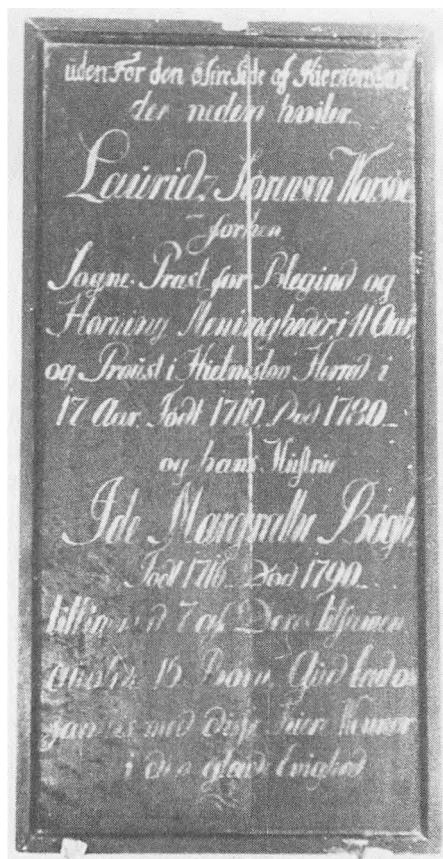 uden For den østre Side af
der neden hviler
Lauridz Sørensen Worsøe
forhen
Sogne-Præst for Blegind og
Hørning Menigheder i 41 Aar
og Provst i Hielmslev Herred i
17 Aar. Født 1710. Død 1780
og hans Hustrue
Ide Margrathe Bøgh
Født 1716 Død 1790
7 af Deres
15 Børn. Gud
med disse kiere Venner
i den glade Evighed